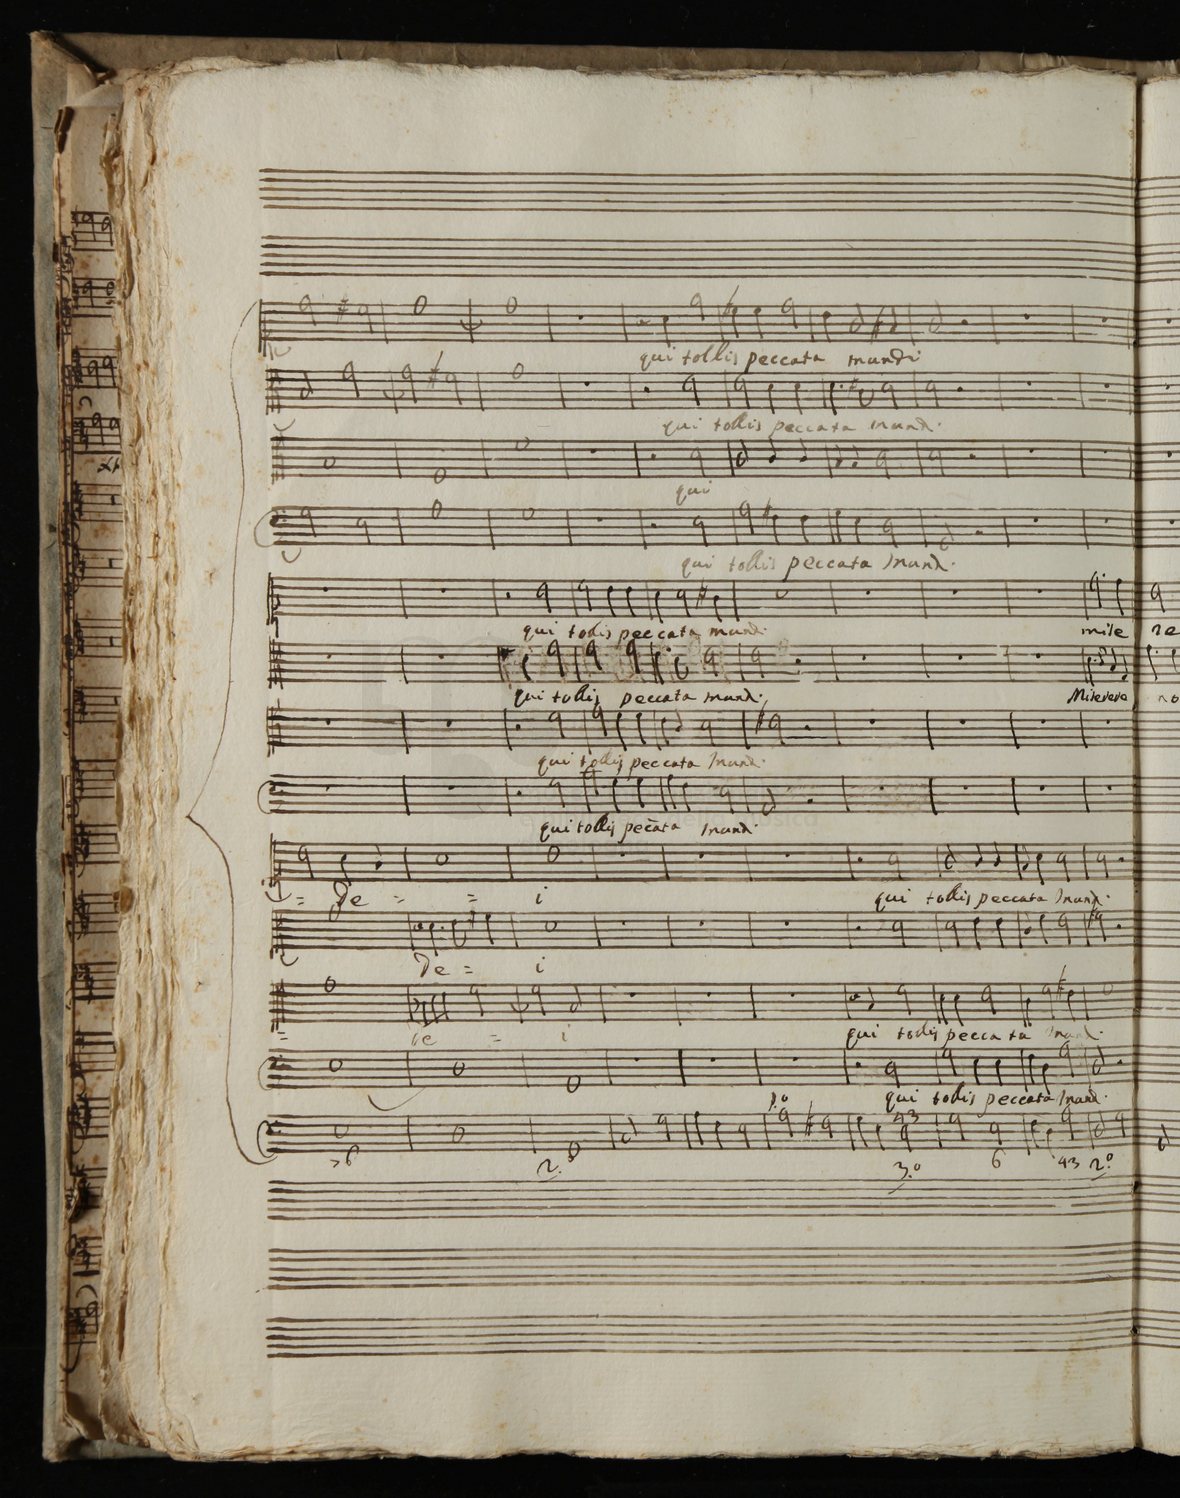 qui tollis peccata mundi
qui tollis peccata mund.
qui
qui tollis peccata mund.
qui tollis peccata mund. mise re
qui tollis peccata mund. Miserere no
qui tollis peccata mund.
qui tollis peccata mund.
= De = = i qui tollis peccata mund.
De = i
= De = i qui tollis peccata mund.
qui tollis peccata mund.
1.º 43
6 2.º 3.º 6 43 2.º